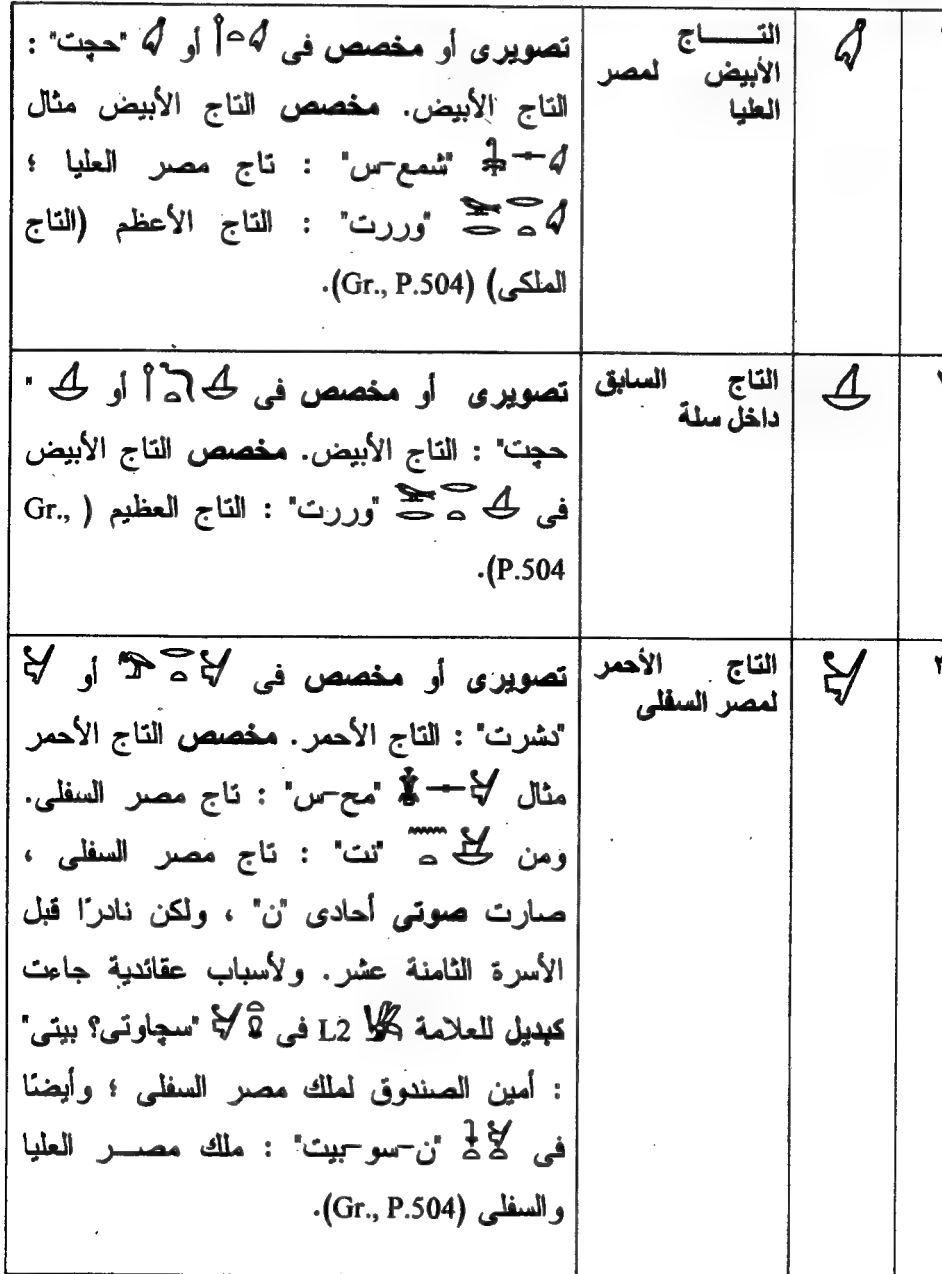 التـــــاج
الأبيض لمصر
العليا
تصويرى أو مخصص فى أو "حجت" :
التاج الأبيض. مخصص التاج الأبيض مثال
"شمع-س" : تاج مصر العليا ؛
"وررت" : التاج الأعظم (التاج
الملكى) (Gr., P.504).
التاج السابق
داخل سلة
تصويرى أو مخصص فى أو "
حجت" : التاج الأبيض. مخصص التاج الأبيض
فى "وررت" : التاج العظيم ( Gr.,
P.504).
٣
التاج الأحمر
لمصر السفلى
تصويرى أو مخصص فى أو
"دشرت" : التاج الأحمر. مخصص التاج الأحمر
مثال "مح-س" : تاج مصر السفلى.
ومن "نت" : تاج مصر السفلى ،
صارت صوتى أحادى "ن" ، ولكن نادرًا قبل
الأسرة الثامنة عشر. ولأسباب عقائدية جاءت
كبديل للعلامة L2 فى "سچاوتى؟ بيتى"
: أمين الصندوق لملك مصر السفلى ؛ وأيضًا
فى "ن-سو-بيت" : ملك مصـــر العليا
والسفلى (Gr., P.504).